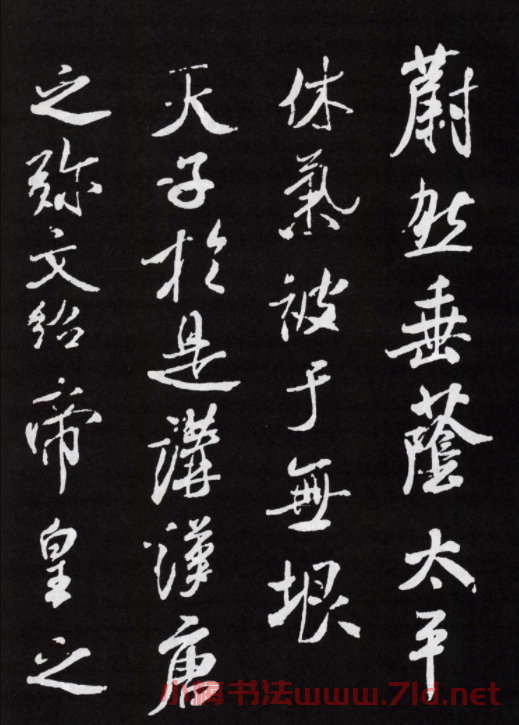 蔚然垂蔭太平
休氣被于無垠
天子於是講漢唐
之弥文紹帝皇之
小梅书法www.7ld.net